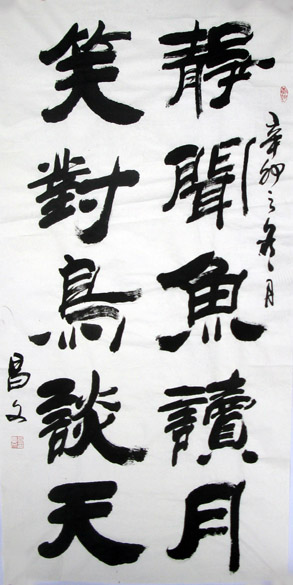 靜聞魚讀月
笑對鳥談天
辛卯之冬月
昌文